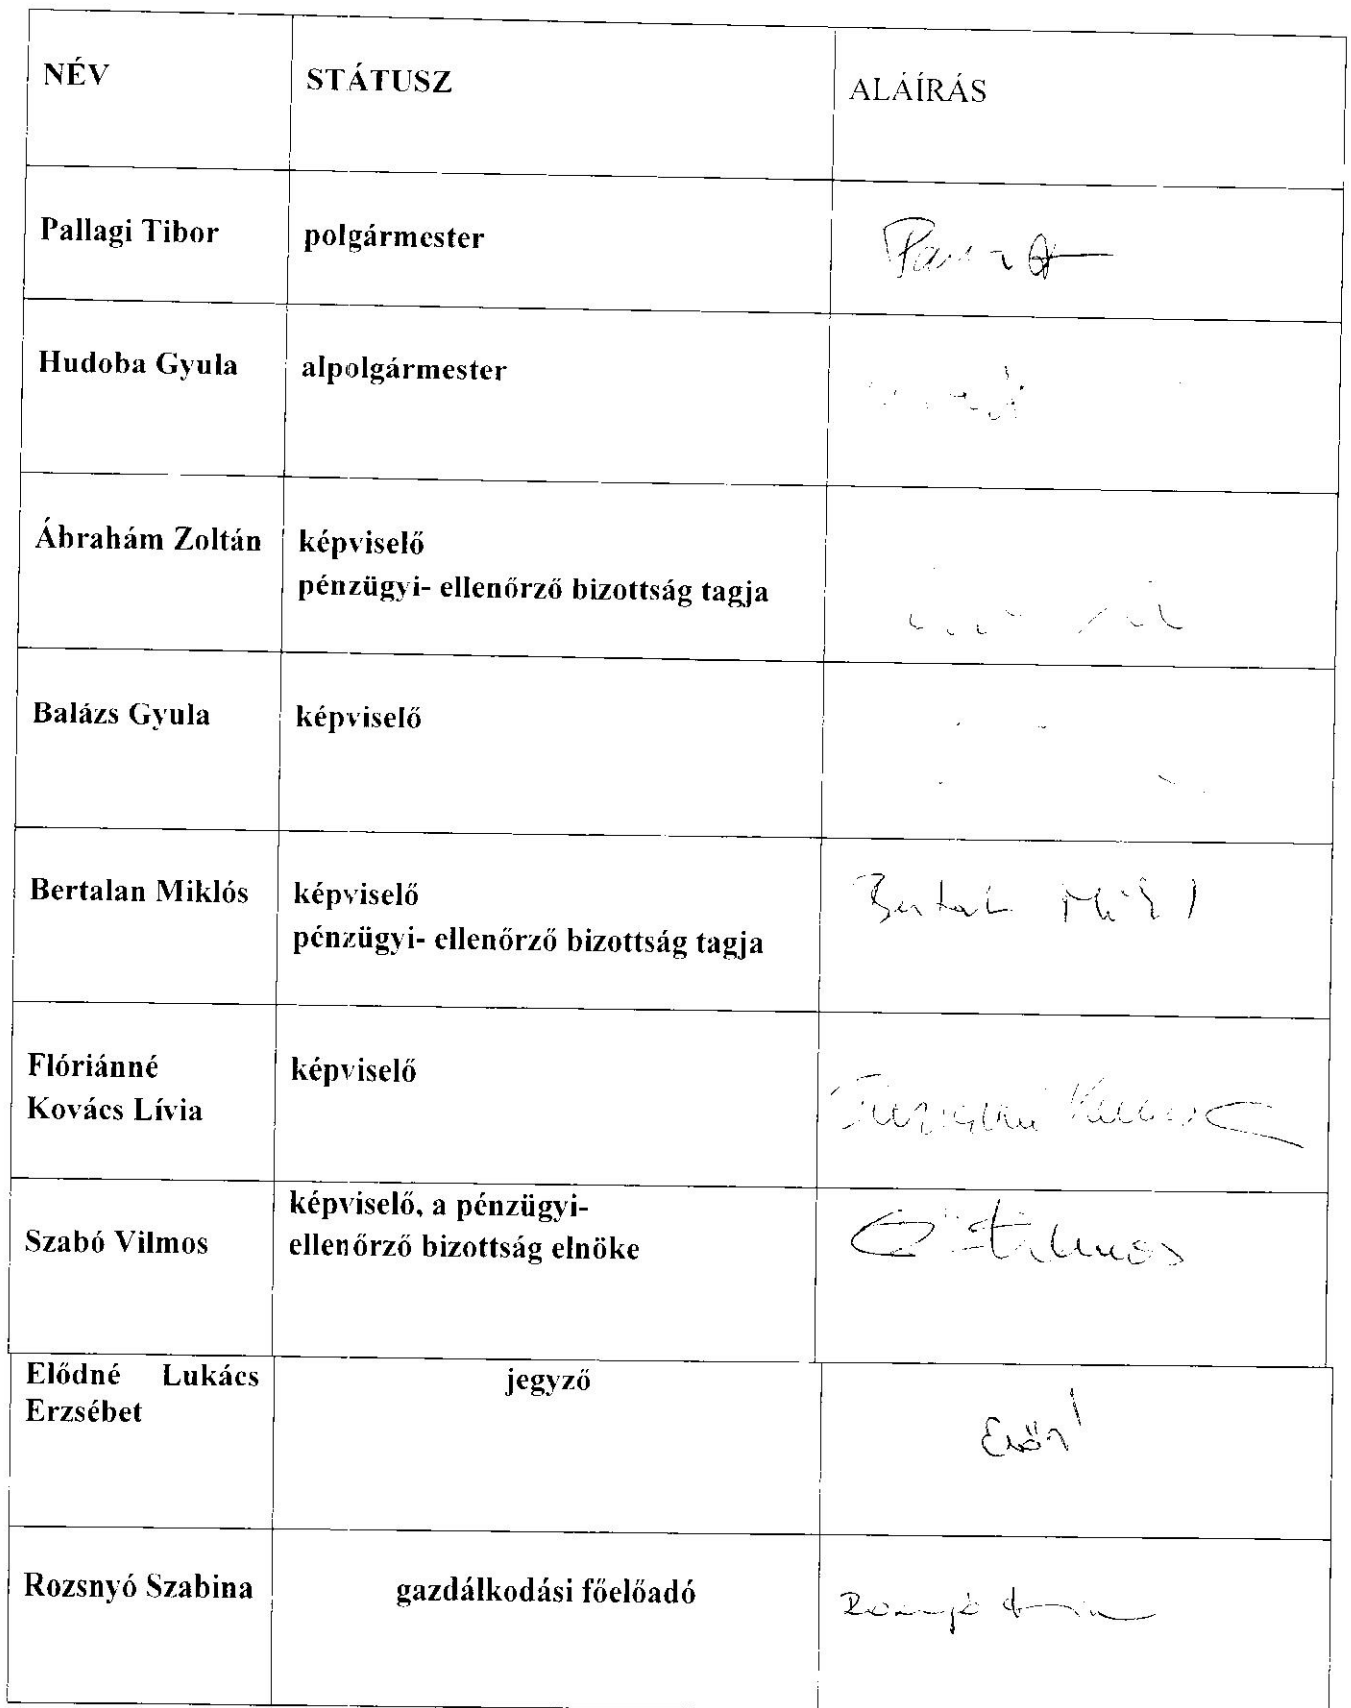 NÉV STÁTUSZ ALÁÍRÁS
Pallagi Tibor polgármester
Hudoba Gyula alpolgármester
Ábrahám Zoltán képviselő
pénzügyi- ellenőrző bizottság tagja
Balázs Gyula képviselő
Bertalan Miklós képviselő
pénzügyi- ellenőrző bizottság tagja
Flóriánné képviselő
Kovács Lívia
képviselő, a pénzügyi-
Szabó Vilmos ellenőrző bizottság elnöke
Elődné Lukács jegyző
Erzsébet
Rozsnyó Szabina gazdálkodási főelőadó